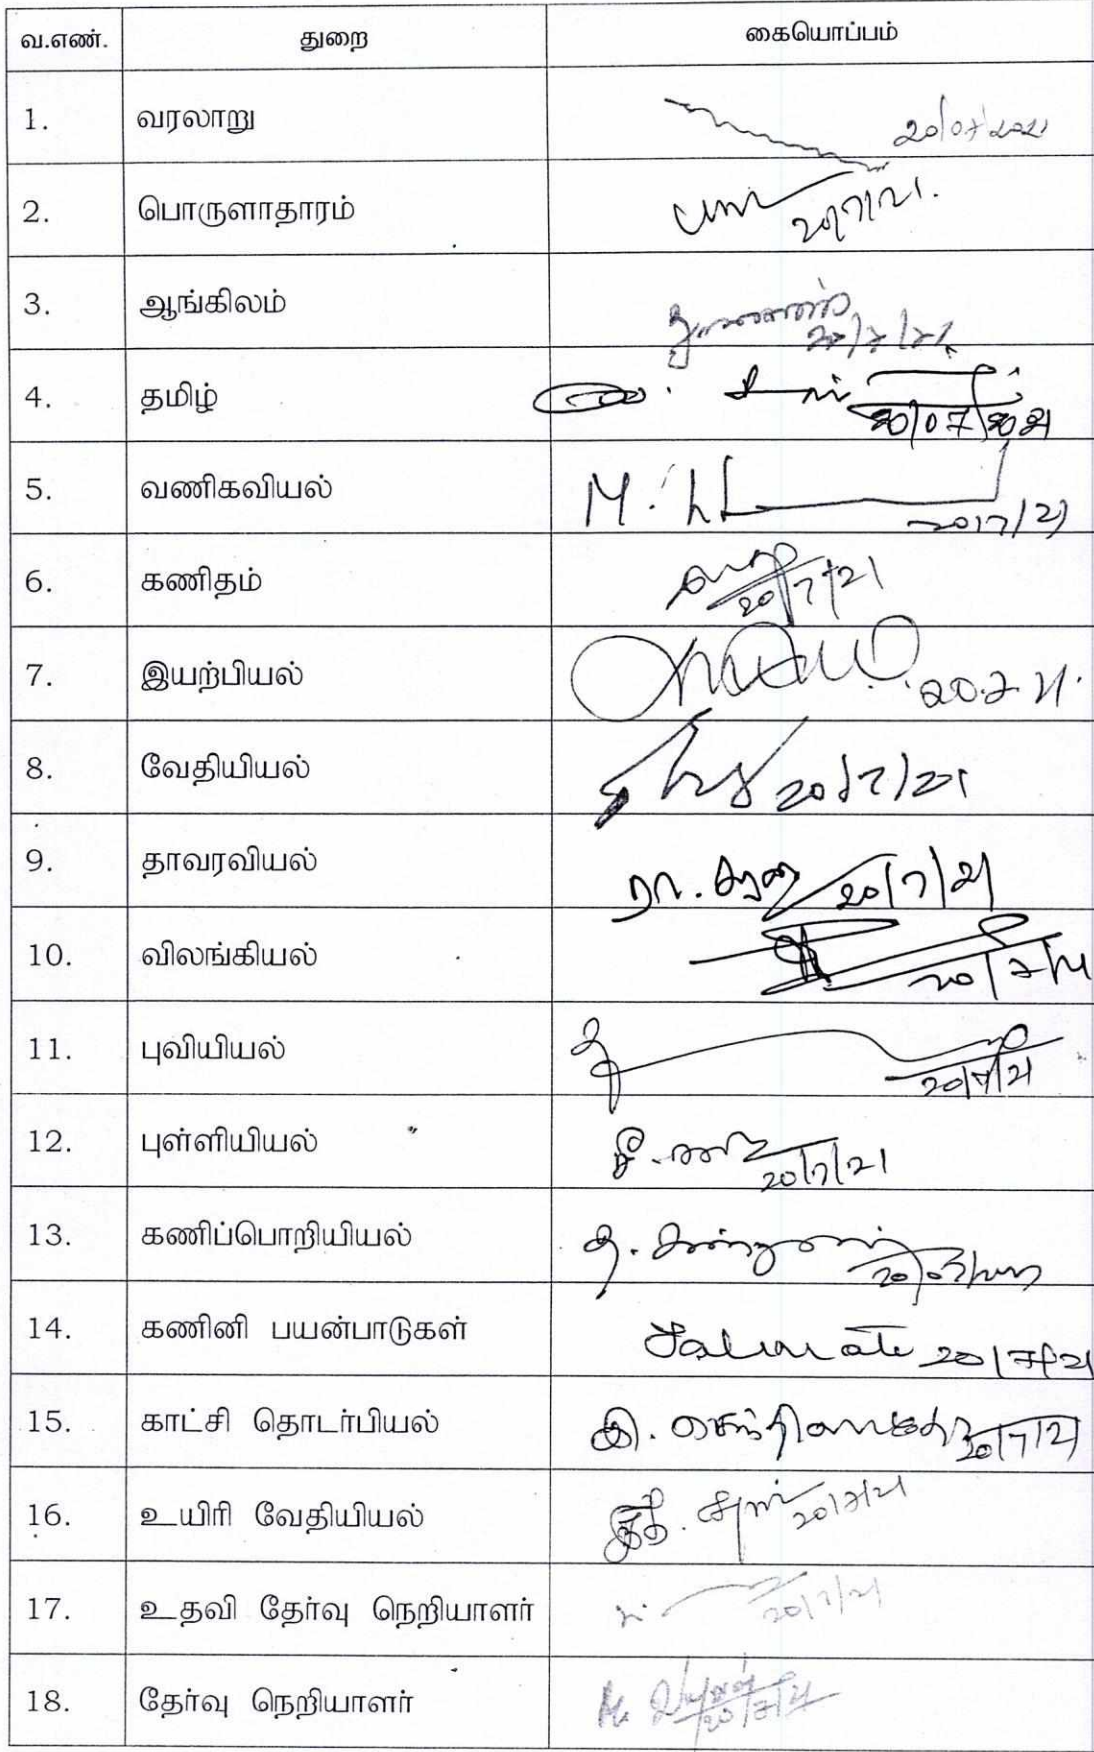 வ.எண். துறை கையொப்பம்
1. வரலாறு 20/07/2021
2. பொருளாதாரம் 20/7/21.
3. ஆங்கிலம் 20/7/21
4. தமிழ் 20/07/2021
5. வணிகவியல் M. 20/7/21
6. கணிதம் 20/7/21
7. இயற்பியல் 20.7.21.
8. வேதியியல் 20/7/21
9. தாவரவியல் ரா. 20/7/21
10. விலங்கியல் 20/7/21
11. புவியியல் 20/7/21
12. புள்ளியியல் 20/7/21
13. கணிப்பொறியியல் 20/07/2021
14. கணினி பயன்பாடுகள் 20/7/21
15. காட்சி தொடர்பியல் 20/7/21
16. உயிரி வேதியியல் 20/7/21
17. உதவி தேர்வு நெறியாளர் 20/7/21
18. தேர்வு நெறியாளர் 20/7/21